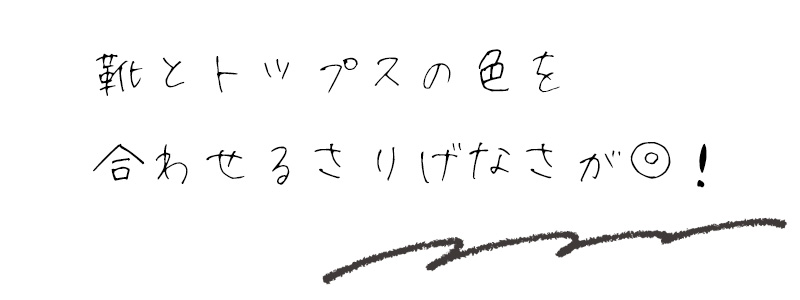 靴とトップスの色を
合わせるさりげなさが◎!